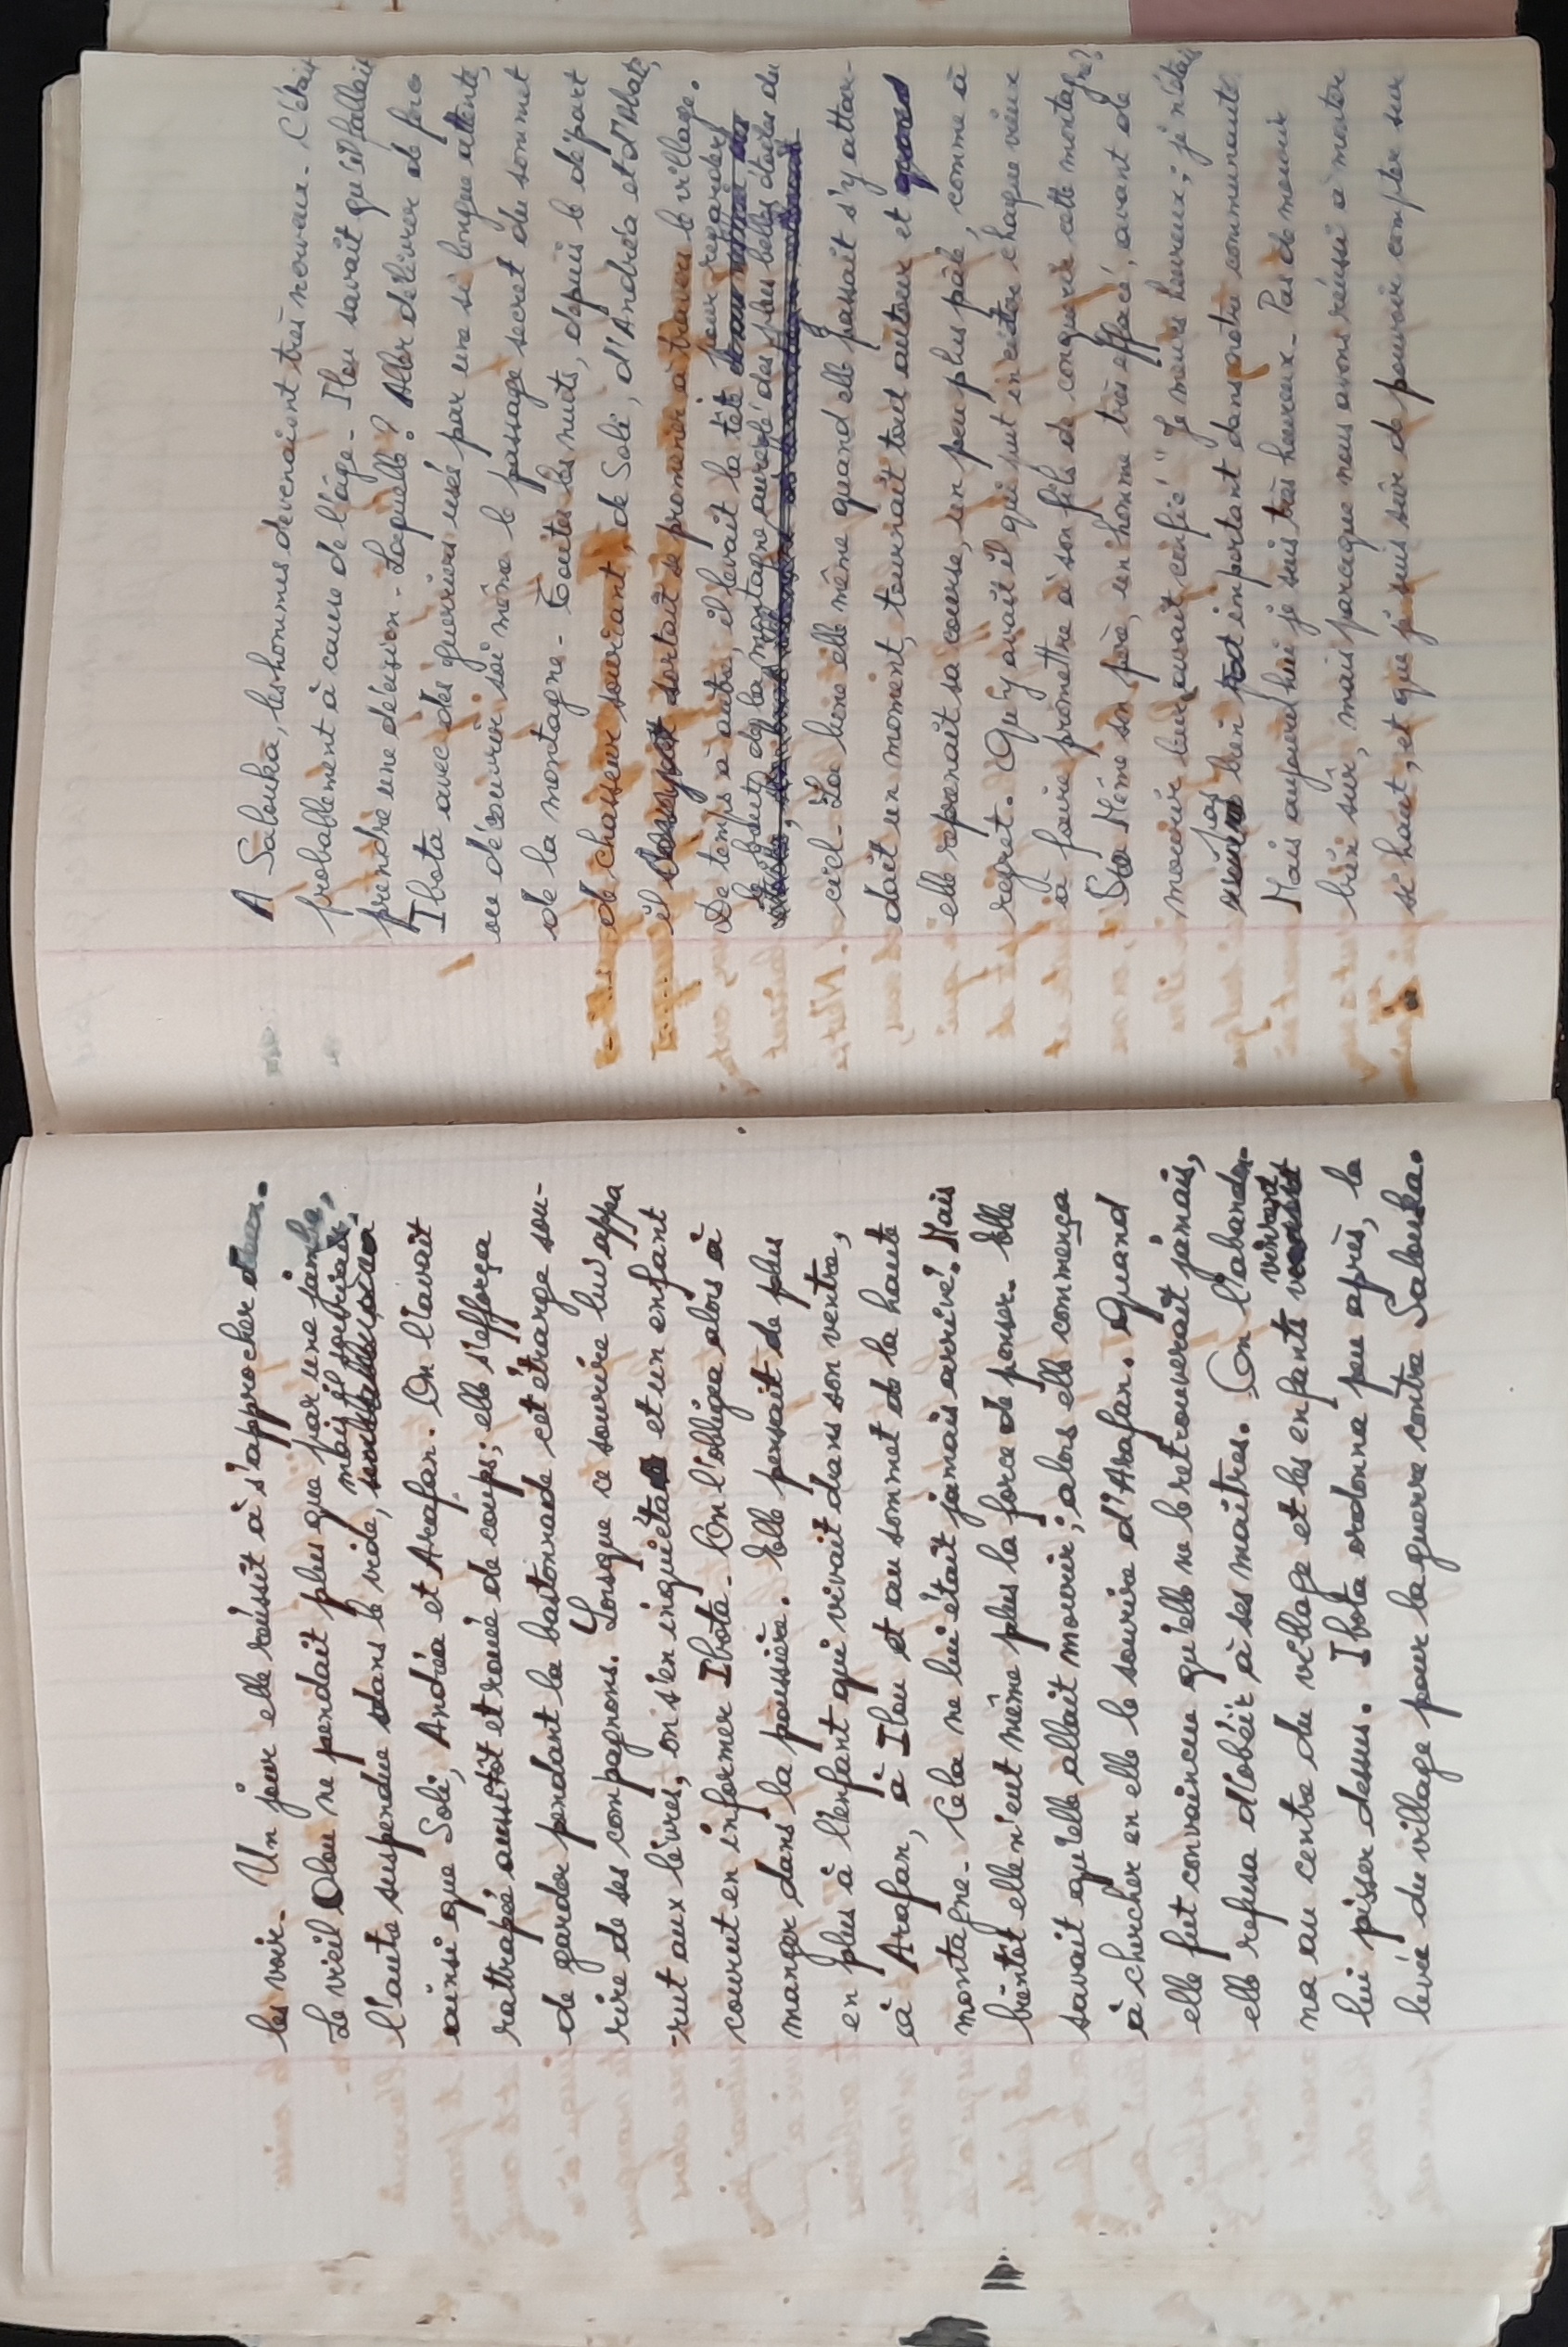 les voir. Un jour elle réussit à s'approcher d'eux.
Le vieil Olou ne pendait plus que par une jambe,
l'autre suspendue dans le vide, mais il souriait.
ainsi que Soli, Andréa et Arafan. On l'avait
rattrapée aussitôt et rouée de coups; elle s'efforça
de garder pendant la bastonnade cet étrange sou-
rire de ses compagnons. Lorsque ce sourire lui appa
-rut aux lèvres, on s'en inquiéta et un enfant
courut en informer Ibota. On l'obligea alors à
manger dans la poussière. Elle pensait de plus
en plus à l'enfant qui vivait dans son ventre,
à Arafan, à Ilou et au sommet de la haute
montagne. Cela ne lui était jamais arrivé. Mais
bientôt elle n'eut même plus la force de penser. Elle
savait qu'elle allait mourir; alors elle commença
à chercher en elle le sourire d'Arafan. Quand
elle fut convaincue qu'elle ne le retrouverait jamais,
elle refusa d'obéir à ses maîtres. On l'abandon-
na au centre du village et les enfants vinrent
lui pisser dessus. Ibota ordonna peu après, la
levée du village pour la guerre contre Salouka.
A Salouka, les hommes devenaient très nerveux. C'était
probablement à cause de l'âge. Ilou savait qu'il fallait
prendre une décision. Laquelle? Aller délivrer de force
Ibota avec des guerriers usés par une si longue attente,
ou découvrir soi même le passage secret du sommet
de la montagne. Toutes les nuits, depuis le départ
de chasseur souriant, de Soli, d'Andréa et d'Albato,
il sortait se promener à travers le village.
De temps à autre, il levait la tête pour regarder
le bout de la montagne auréolé des plus belles étoiles du
ciel. La lune elle même quand elle passait s'y attar-
dait un moment, tournait tout autour et quand
elle reprenait sa course, un peu plus pâle, comme à
regret. Qu'y avait il qui put inciter chaque vieux
à faire promettre à son fils de conquérir cette montagne?
Même son père, un homme très effacé, avant de
mourir lui avait confié "Je meurs heureux; je n'étais
pas bien important dans notre communauté.
Mais aujourd'hui je suis très heureux. Pas de mourir
bien sûr, mais parce que nous avons réussi à monter
si haut, et que je suis sûr de pouvoir compter sur